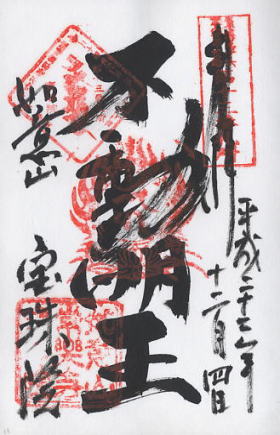 奉拝
平成二十三年
十二月四日
不動明王
如意山
宝珠院